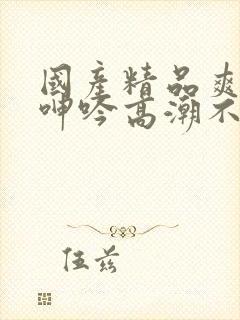 國產精品爽
呻吟高潮不
伍茲